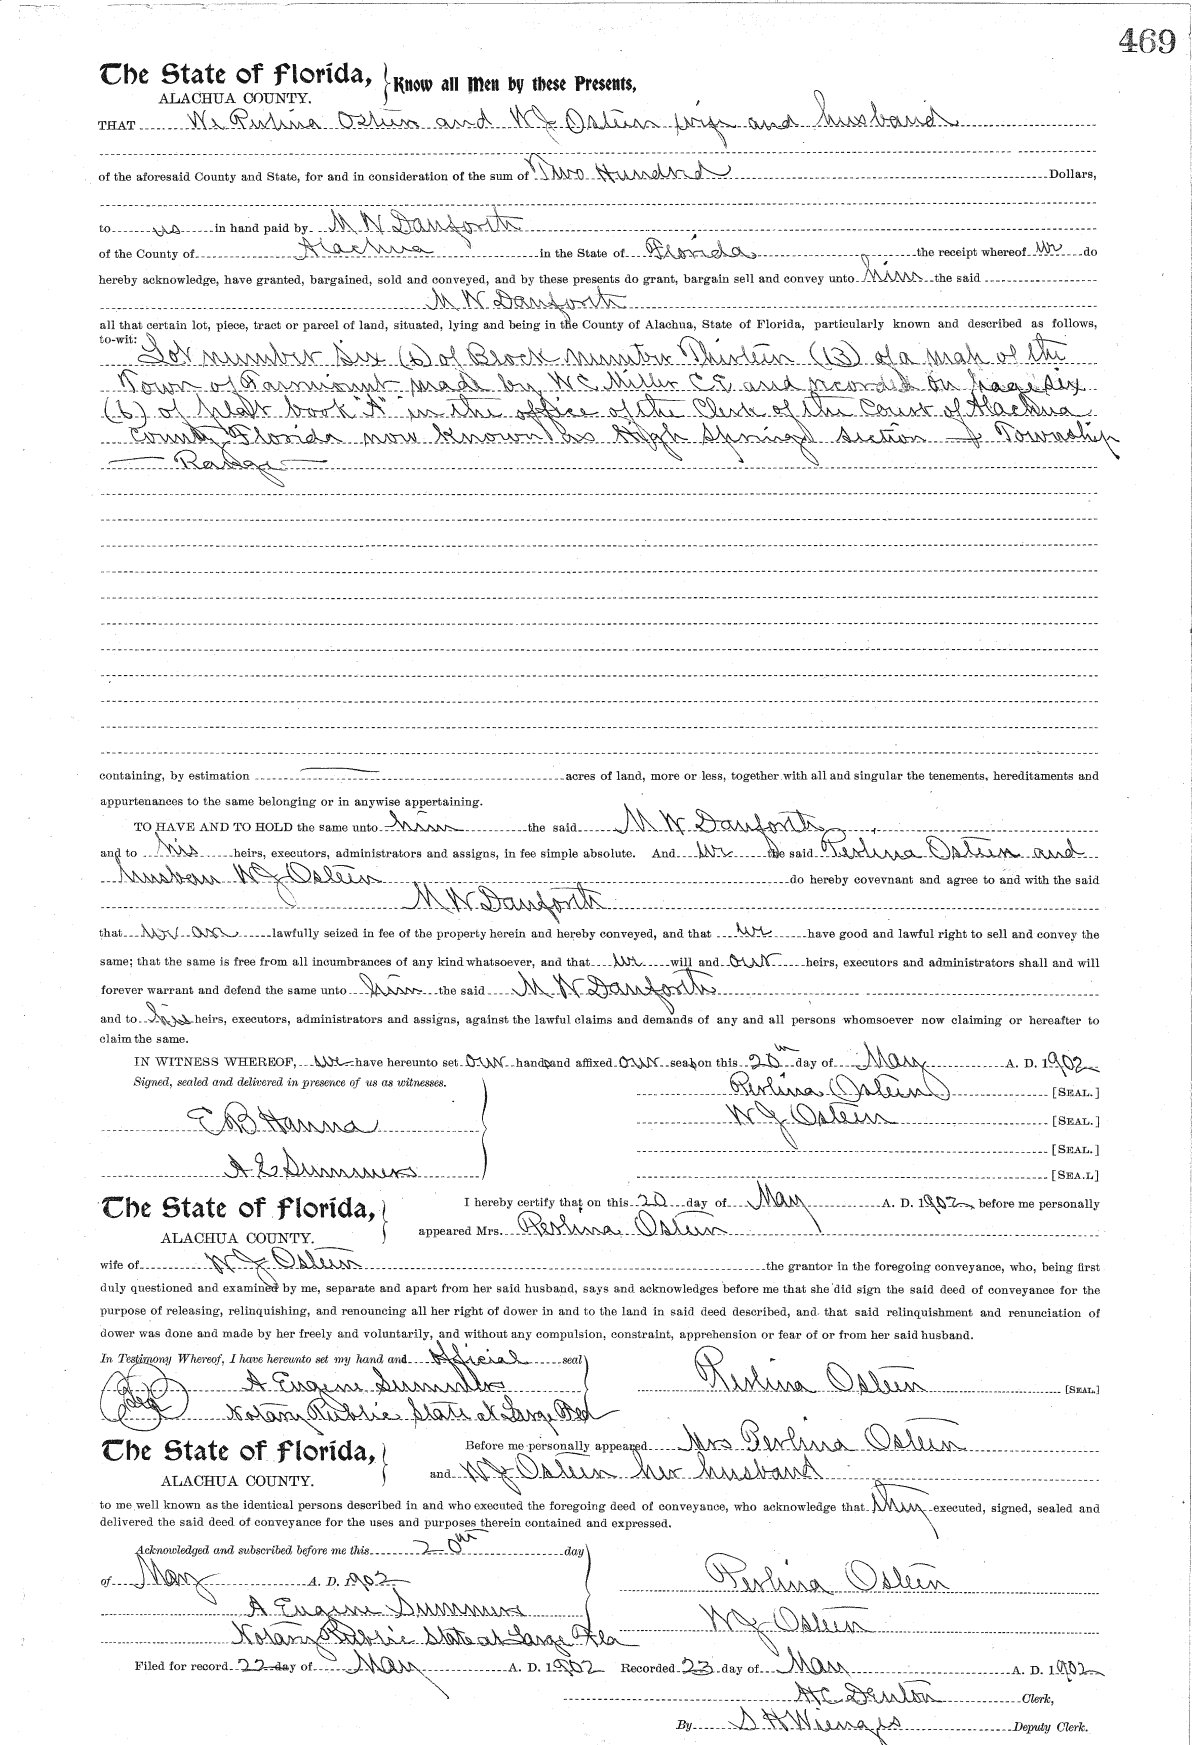 469
The State of Florida, Know all Men by these Presents,
ALACHUA COUNTY.
THAT We Perlina Osteen and W J Osteen wife and husband
of the aforesaid County and State, for and in consideration of the sum of Two Hundred Dollars,
to us in hand paid by M W Danforth
of the County of Alachua in the State of Florida the receipt whereof we do
hereby acknowledge, have granted, bargained, sold and conveyed, and by these presents do grant, bargain sell and convey unto him the said
M W Danforth
all that certain lot, piece, tract or parcel of land, situated, lying and being in the County of Alachua, State of Florida, particularly known and described as follows,
to-wit:
Lot number Six (6) of Block number Thirteen (13) of a map of the
Town of Fairmount made by W C Miller C.E and recorded on page six
(6) of platt book "A" in the office of the Clerk of the Court of Alachua
County Florida now known as High Springs section Township
Range
containing, by estimation acres of land, more or less, together with all and singular the tenements, hereditaments and
appurtenances to the same belonging or in anywise appertaining.
TO HAVE AND TO HOLD the same unto him the said M W Danforth
and to his heirs, executors, administrators and assigns, in fee simple absolute. And we the said Perlina Osteen and
husban W J Osteen do hereby covevnant and agree to and with the said
M W Danforth
that we are lawfully seized in fee of the property herein and hereby conveyed, and that we have good and lawful right to sell and convey the
same; that the same is free from all incumbrances of any kind whatsoever, and that we will and our heirs, executors and administrators shall and will
forever warrant and defend the same unto him the said M W Danforth
and to his heirs, executors, administrators and assigns, against the lawful claims and demands of any and all persons whomsoever now claiming or hereafter to
claim the same.
IN WITNESS WHEREOF, we have hereunto set our hands and affixed our seals on this 20th day of May A. D. 1902
Signed, sealed and delivered in presence of us as witnesses. Perlina Osteen [SEAL.]
E B Hanna W J Osteen [SEAL.]
[SEAL.]
A E Summers [SEA.L]
The State of Florida, I hereby certify that on this 20 day of May A. D. 1902 before me personally
ALACHUA COUNTY. appeared Mrs. Perlina Osteen
wife of W J Osteen the grantor in the foregoing conveyance, who, being first
duly questioned and examined by me, separate and apart from her said husband, says and acknowledges before me that she did sign the said deed of conveyance for the
purpose of releasing, relinquishing, and renouncing all her right of dower in and to the land in said deed described, and that said relinquishment and renunciation of
dower was done and made by her freely and voluntarily, and without any compulsion, constraint, apprehension or fear of or from her said husband.
In Testimony Whereof, I have hereunto set my hand and official seal
A Eugene Summers Perlina Osteen [SEAL.]
Notary Public State at Large
The State of Florida, Before me personally appeared Mrs Perlina Osteen
ALACHUA COUNTY. and W J Osteen her husband
to me well known as the identical persons described in and who executed the foregoing deed of conveyance, who acknowledge that they executed, signed, sealed and
delivered the said deed of conveyance for the uses and purposes therein contained and expressed.
Acknowledged and subscribed before me this 20th day
of May A. D. 1902 Perlina Osteen
A Eugene Summers W J Osteen
Notary Public State at Large Fla
Filed for record 22 day of May A. D. 1902 Recorded 23 day of May A. D. 1902
H C Denton Clerk,
By S H Wienges Deputy Clerk.